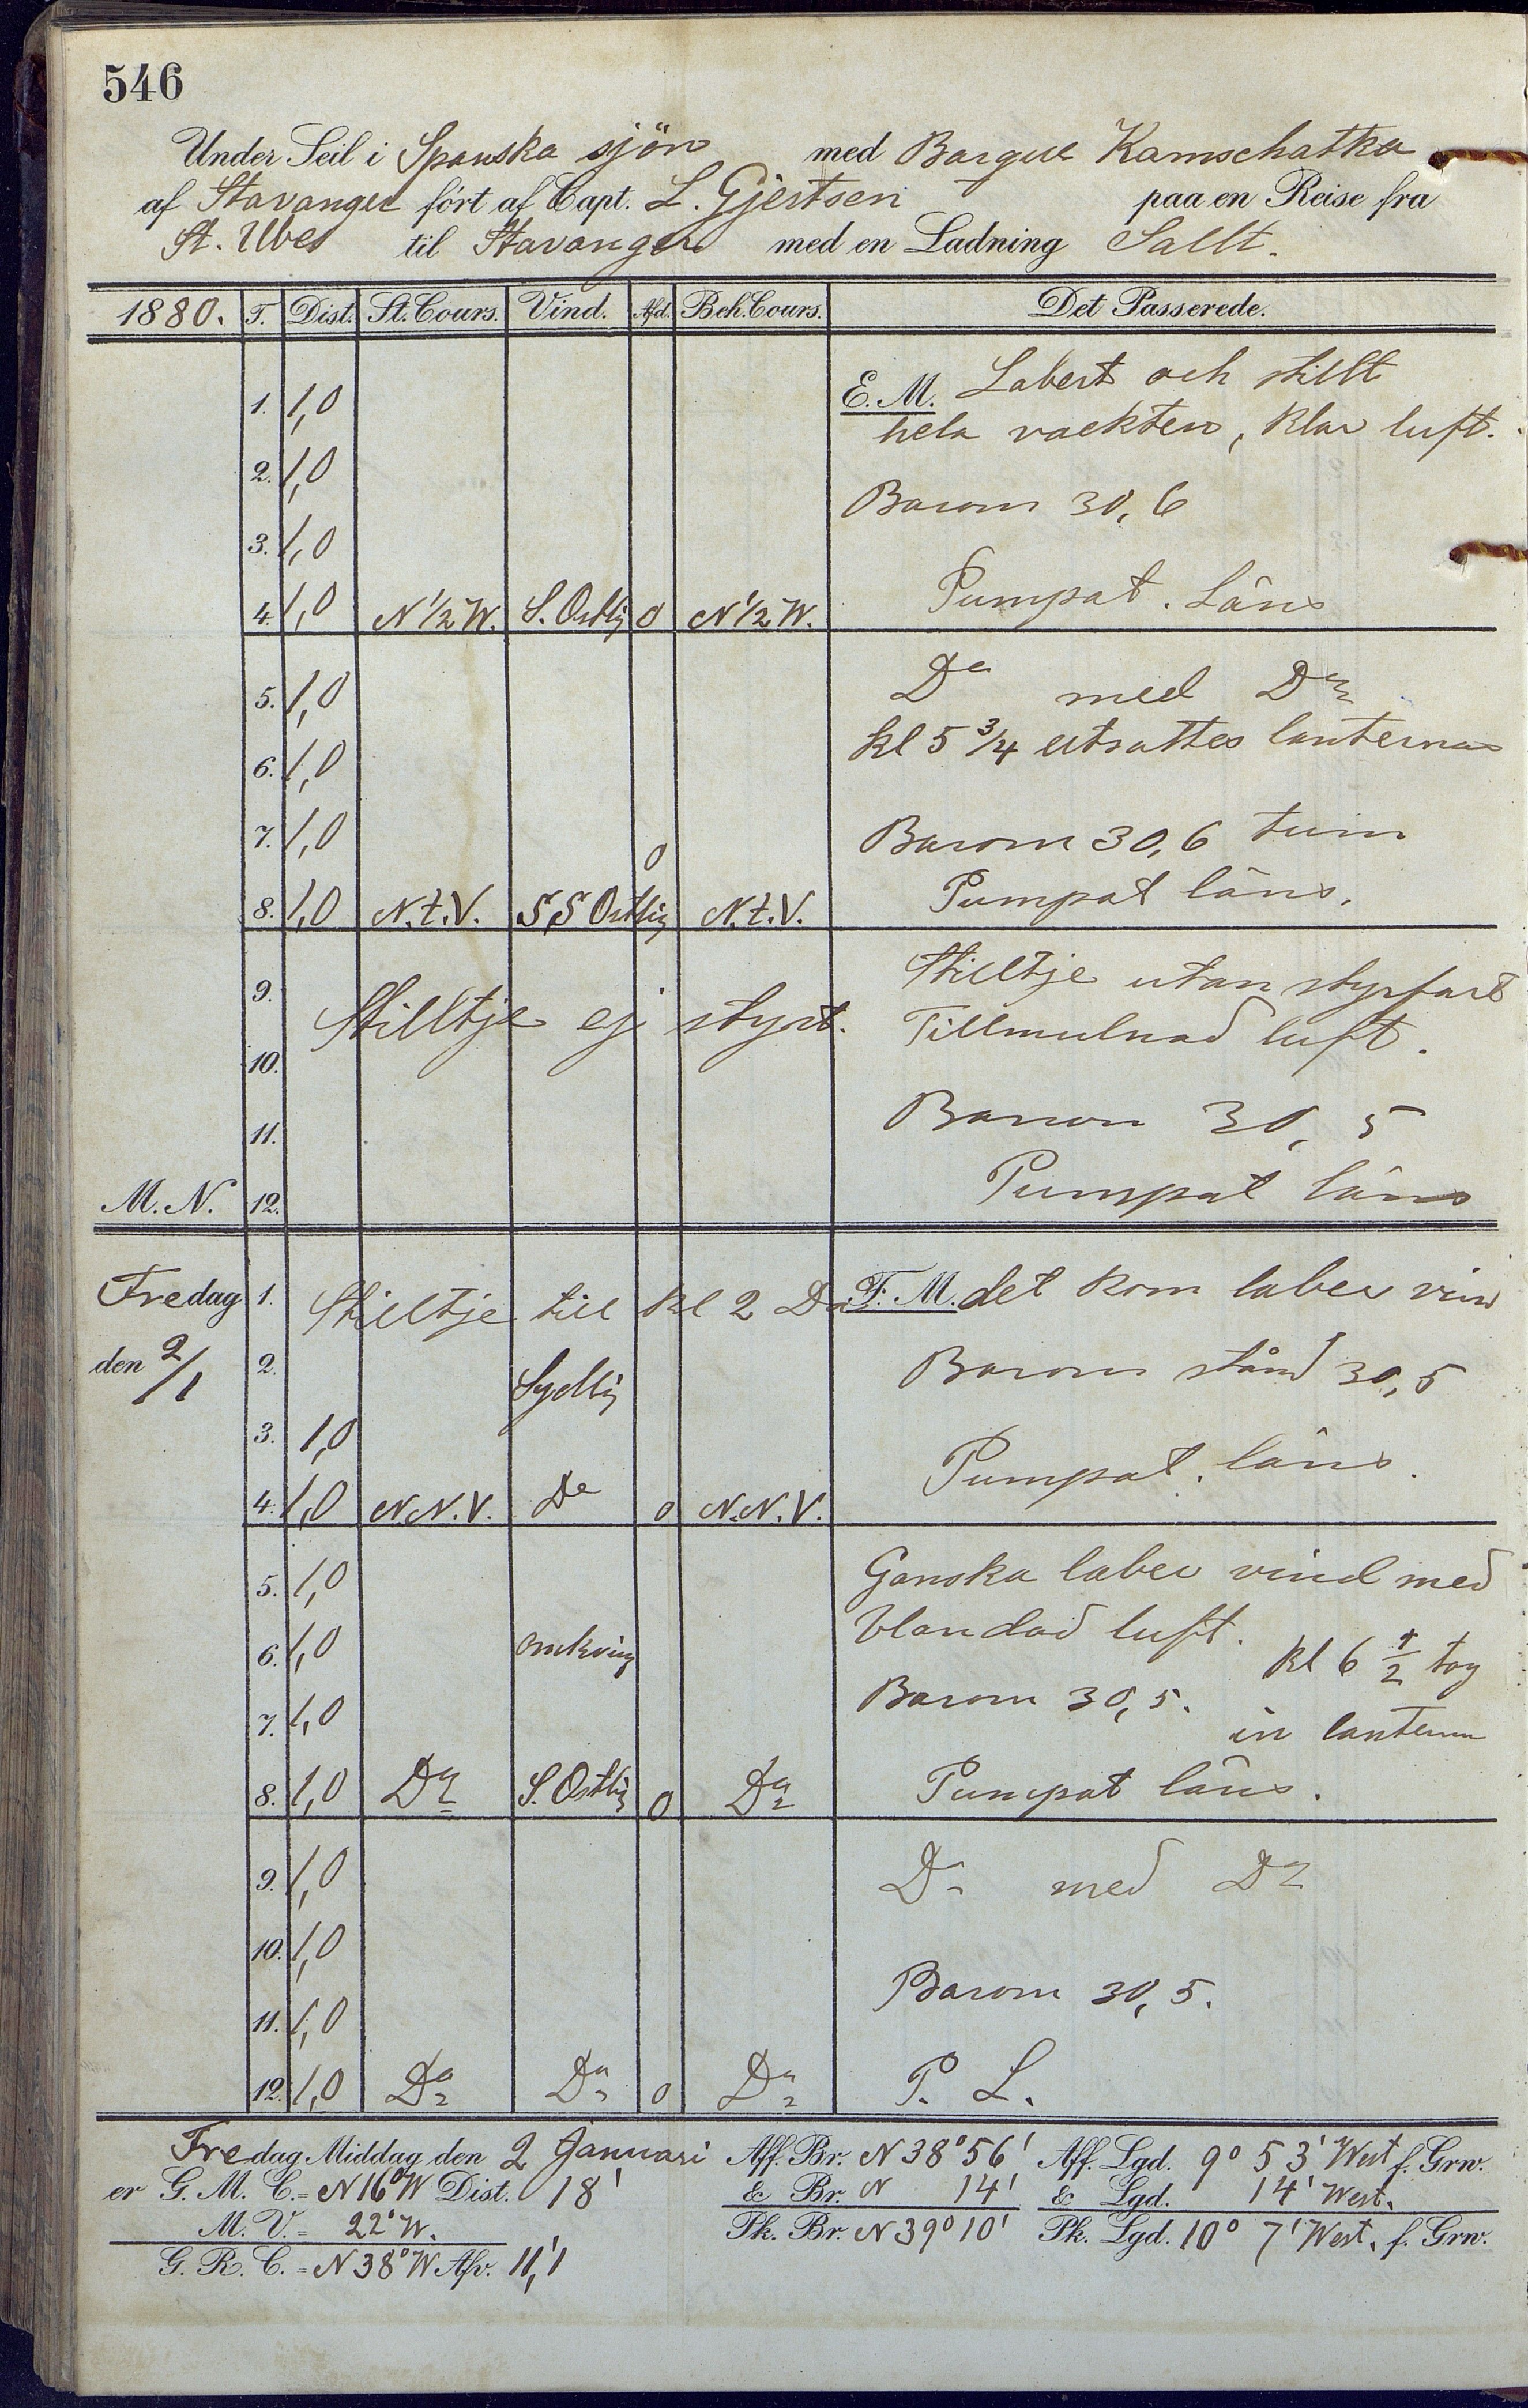 546
Under Seil i Spanska sjön med Barque Kamschatka
af Stavanger ført af Capt. L. Gjertsen paa en Reise fra
St. Ubes til Stavanger med en Ladning Sallt.
1880. T. Dist. St. Cours. Vind. Afd. Beh. Cours. Det Passerede.
E. M. Labert och stillt
1. 1,0
hela vackten, klar luft.
2. 1,0
Barom 30,6
3. 1,0
4. 1,0 N 1/2 W. S. Ostlig 0 N 1/2 W. Pumpat. Läns
5. 1,0 Do med Do
6. 1,0 kl 5 3/4 utsattes lanternas
7. 1,0 0 Barom 30,6 tum
8. 1,0 N.t.V. S S Ostlig N.t.V. Pumpat läns.
9. Stilltje utan styrfart
Stilltje ej styrt. Tillmulnad luft.
10.
11. Barom 30,5
M. N. 12. Pumpat läns
Fredag 1. Stilltje till kl 2 Do F. M. det kom laber vind
den 2/1 2. Sydlig Barom stånd 30,5
3. 1,0
4. 1,0 N.N.V. Do 0 N.N.V. Pumpat. läns.
5. 1,0 Ganska laber vind med
6. 1,0 omkring blandad luft. kl 6 1/2 tog
7. 1,0 Barom 30,5. in lantern
8. 1,0 Do S. Ostlig 0 Do Pumpat läns.
9. 1,0 Do med Do
10. 1,0
Barom 30,5.
11. 1,0
12. 1,0 Do Do 0 Do P. L.
Fredag Middag den 2 Januari Aff. Br. N 38° 56' Aff. Lgd. 9° 53' West f. Grw.
er G. M. C. = N 16° W Dist. 18' & Br. N 14' & Lgd. 14' West.
M. V. = 22° W. Pk. Br. N 39° 10' Pk. Lgd. 10° 7' West. f. Grw.
G. R. C. = N 38° W Afv. 11,'1